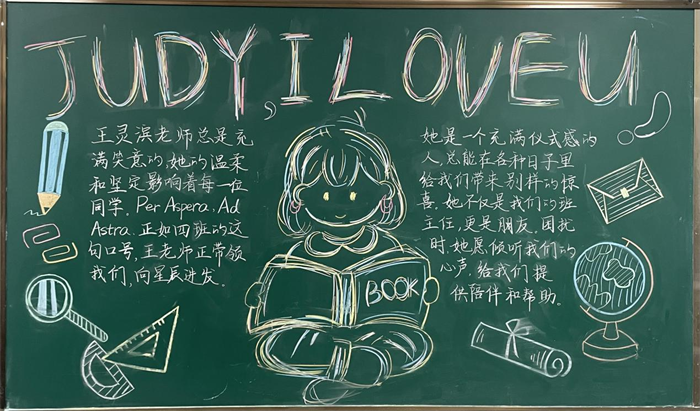 JUDY, I LOVE U,
王灵滨老师总是充
满笑意的,她的温柔
和坚定影响着每一位
同学. Per Aspera, Ad
Astra. 正如四班的这
句口号,王老师正带领
我们,向星辰进发。
她是一个充满仪式感的
人,总能在各种日子里
给我们带来别样的惊
喜.她不仅是我们的班
主任,更是朋友.困扰
时,她愿倾听我们的
心声.给我们提
供陪伴和帮助。
BOOK